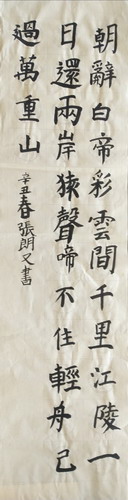 朝辭白帝彩雲間千里江陵一
日還兩岸猿聲啼不住輕舟已
過萬重山
辛丑春張朗又書